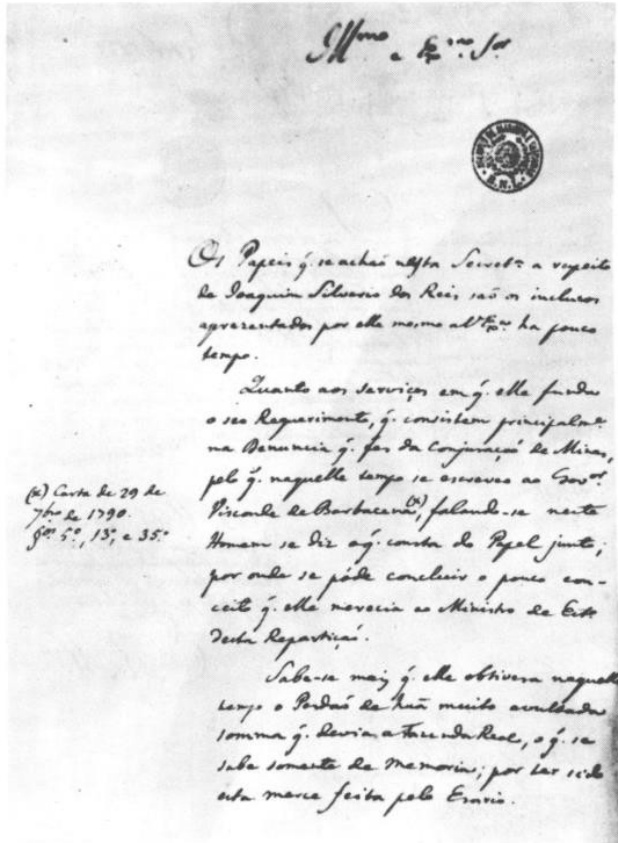 Ill.mo e Ex.mo Snr
Os Papeis q. se achaõ nesta Secret.ª a respeito
de Joaquim Silverio dos Reis saõ os inclusos
aprezentados por elle mesmo a V. Ex.ª ha pouco
tempo.
Quanto aos serviços em q. elle funda
o seo Requerimento, q. consistem principalm.e
na Denuncia q. fas da Conjuraçaõ de Minas,
pelo q. naquelle tempo se escreveo ao Gov.or
Visconde de Barbacena (x), falando-se neste
Homem se diz o q. consta do Papel junto;
por onde se póde concluir o pouco con-
ceito q. elle merecia ao Ministro de Est.
desta Repartiçaõ.
(x) Carta de 29 de
7bro de 1790.
§os 5º, 13º, e 35º
Sabe-se mais q. elle obtivera naquelle
tempo o Perdaõ de huã muito avultada
somma q. devia a Fazenda Real, o q. se
sabe somente de memoria; por ter sido
esta merce feita pelo Erario.